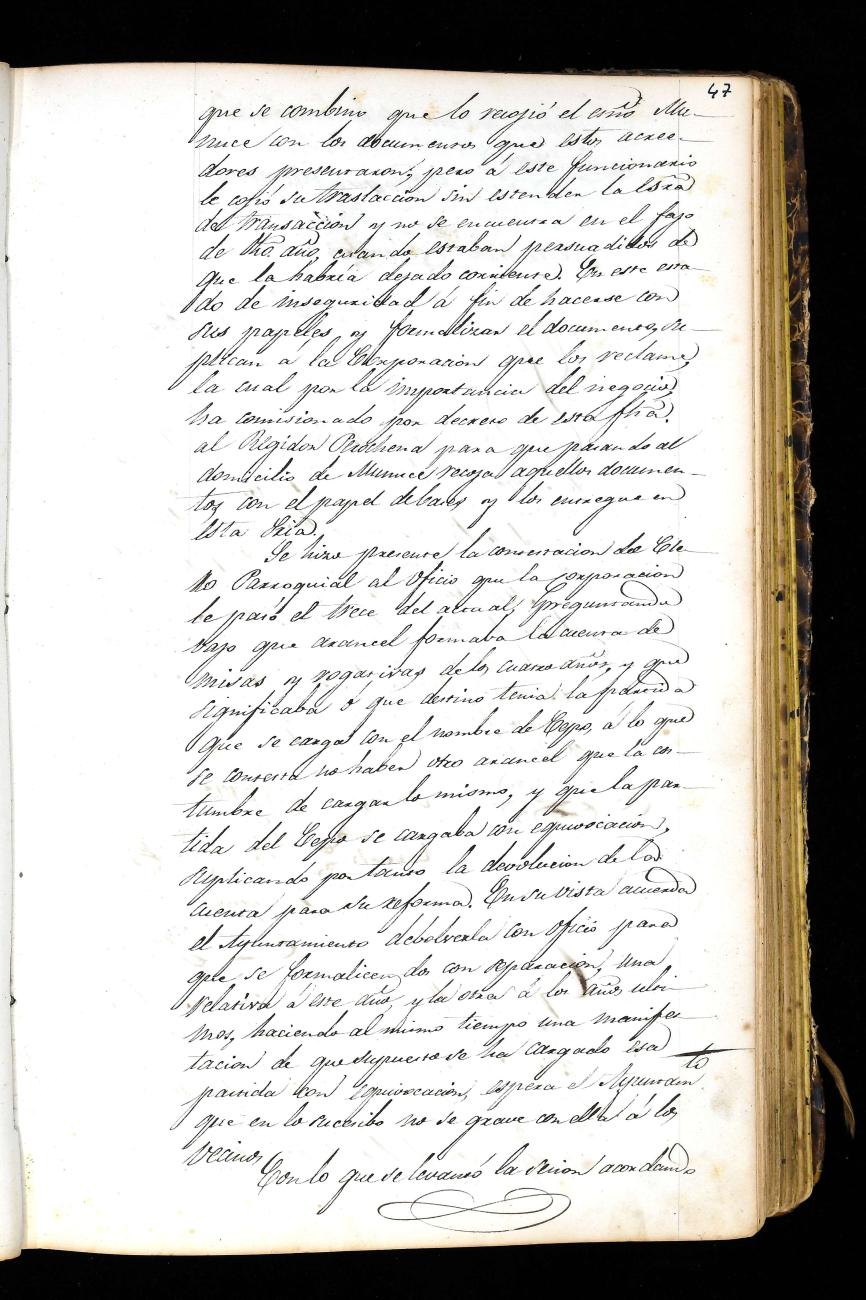 47
que se combino que lo recojió el esnõ Mu-
nuce con los documentos que estos acree-
dores presentaron, pero á este funcionario
le cojió su traslacion sin estender la Esrã
de transaccion y no se encuentra en el fajo
de dho. año, cuando estaban persuadidos de
que la habria dejado corriente. En este esta-
do de inseguridad á fin de hacerse con
sus papeles y formalizar el documento, su-
plican a la Corporacion que los reclame,
la cual por la importancia del negocio,
ha comisionado por decreto de esta fhã.
al Regidor Perochena para que pasando al
domicilio de Munuce recoja aquellos documen-
tos con el papel de bases y los entregue en
esta Sria.
Se hizo presente la contestacion del Cle-
ro Parroquial al oficio que la corporacion
le pasó el trece del actual, preguntando
bajo que arancel formaba la cuenta de
misas y rogativas de los cuatro años, y que
significaba ó que destino tenia la partida
que se carga con el nombre de Cepo, á lo que
se contesta no haber otro arancel que la cos-
tumbre de cargar lo mismo, y que la par-
tida del Cepo se cargaba con equivocacion,
suplicando por tanto la devolucion de la
cuenta para su reforma. En su vista acuerda
el Ayuntamiento debolverla con oficio para
que se formalicen dos con separacion, una
relativa á este año y la otra á los años ulti-
mos, haciendo al mismo tiempo una manifes-
tacion de que supuesto se ha cargado esa
partida con equivocacion, espera el Ayuntam.to
que en lo sucesibo no se grave con ella á los
vecinos.
Con lo que se levantó la sesion acordando